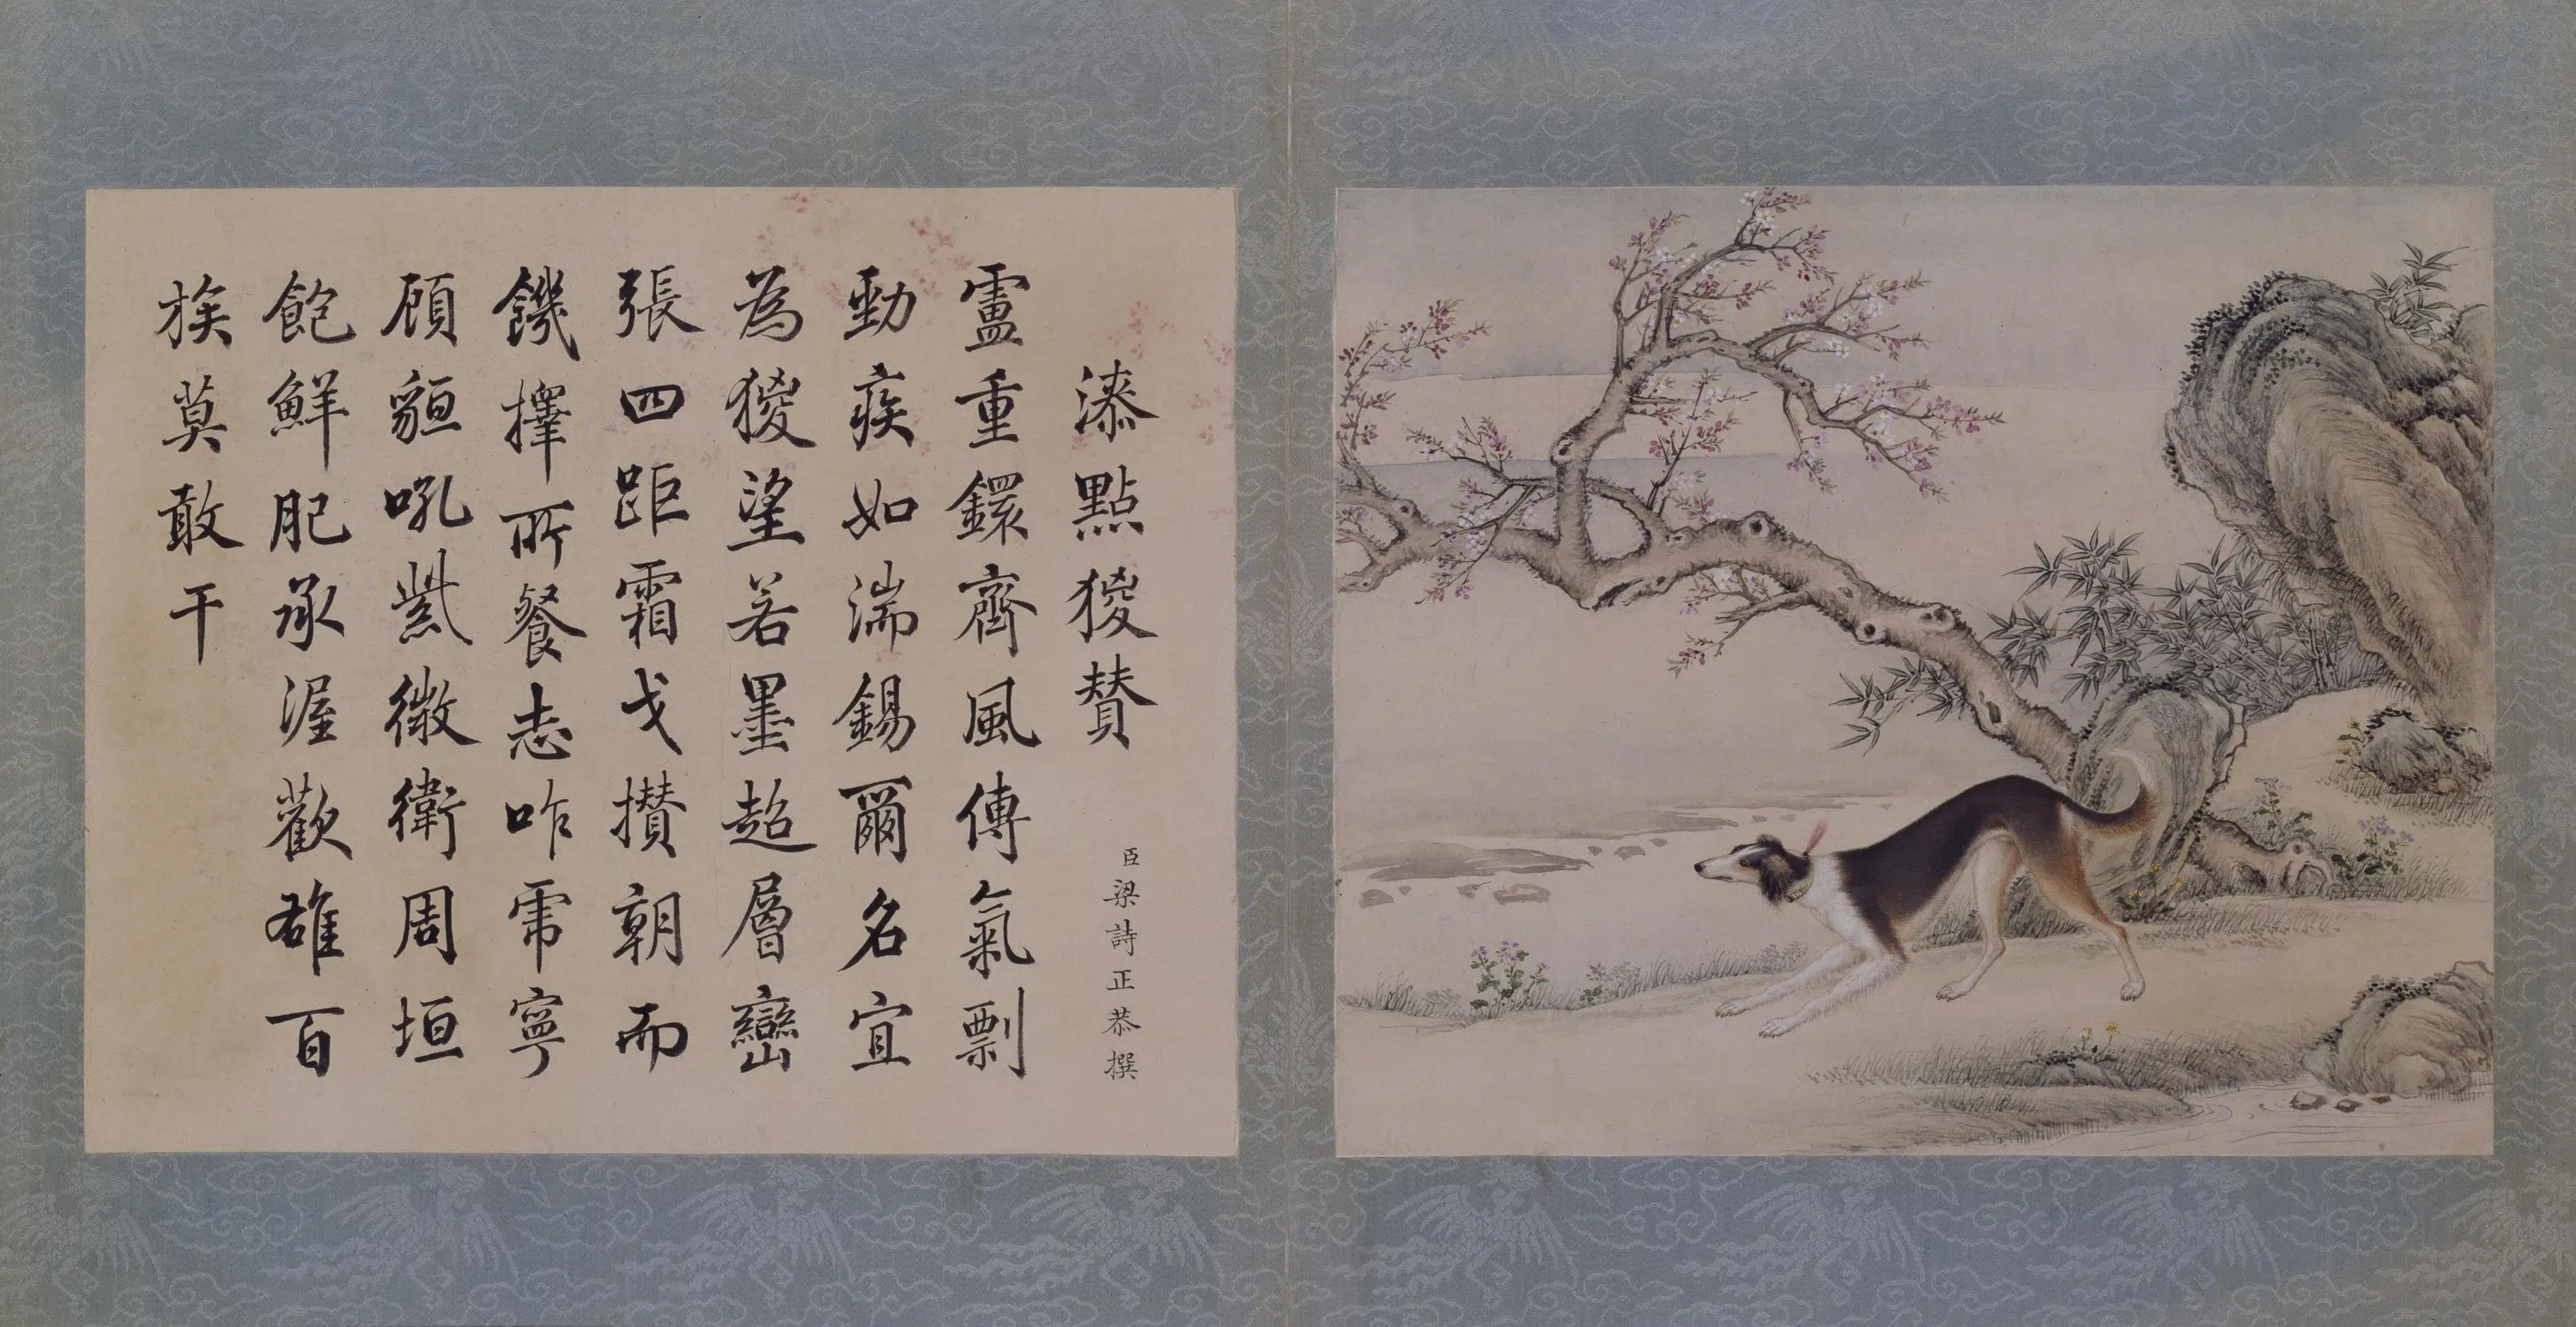 漆點猣賛
臣梁詩正恭撰
盧重鐶齊風傳氣剽
勁疾如湍錫爾名宜
為猣望若墨超層巒
張四距霜戈攢朝而
饑擇所餐志咋乕寧
顧貆吼紫徼衛周垣
飽鮮肥承渥歡雄百
族莫敢干